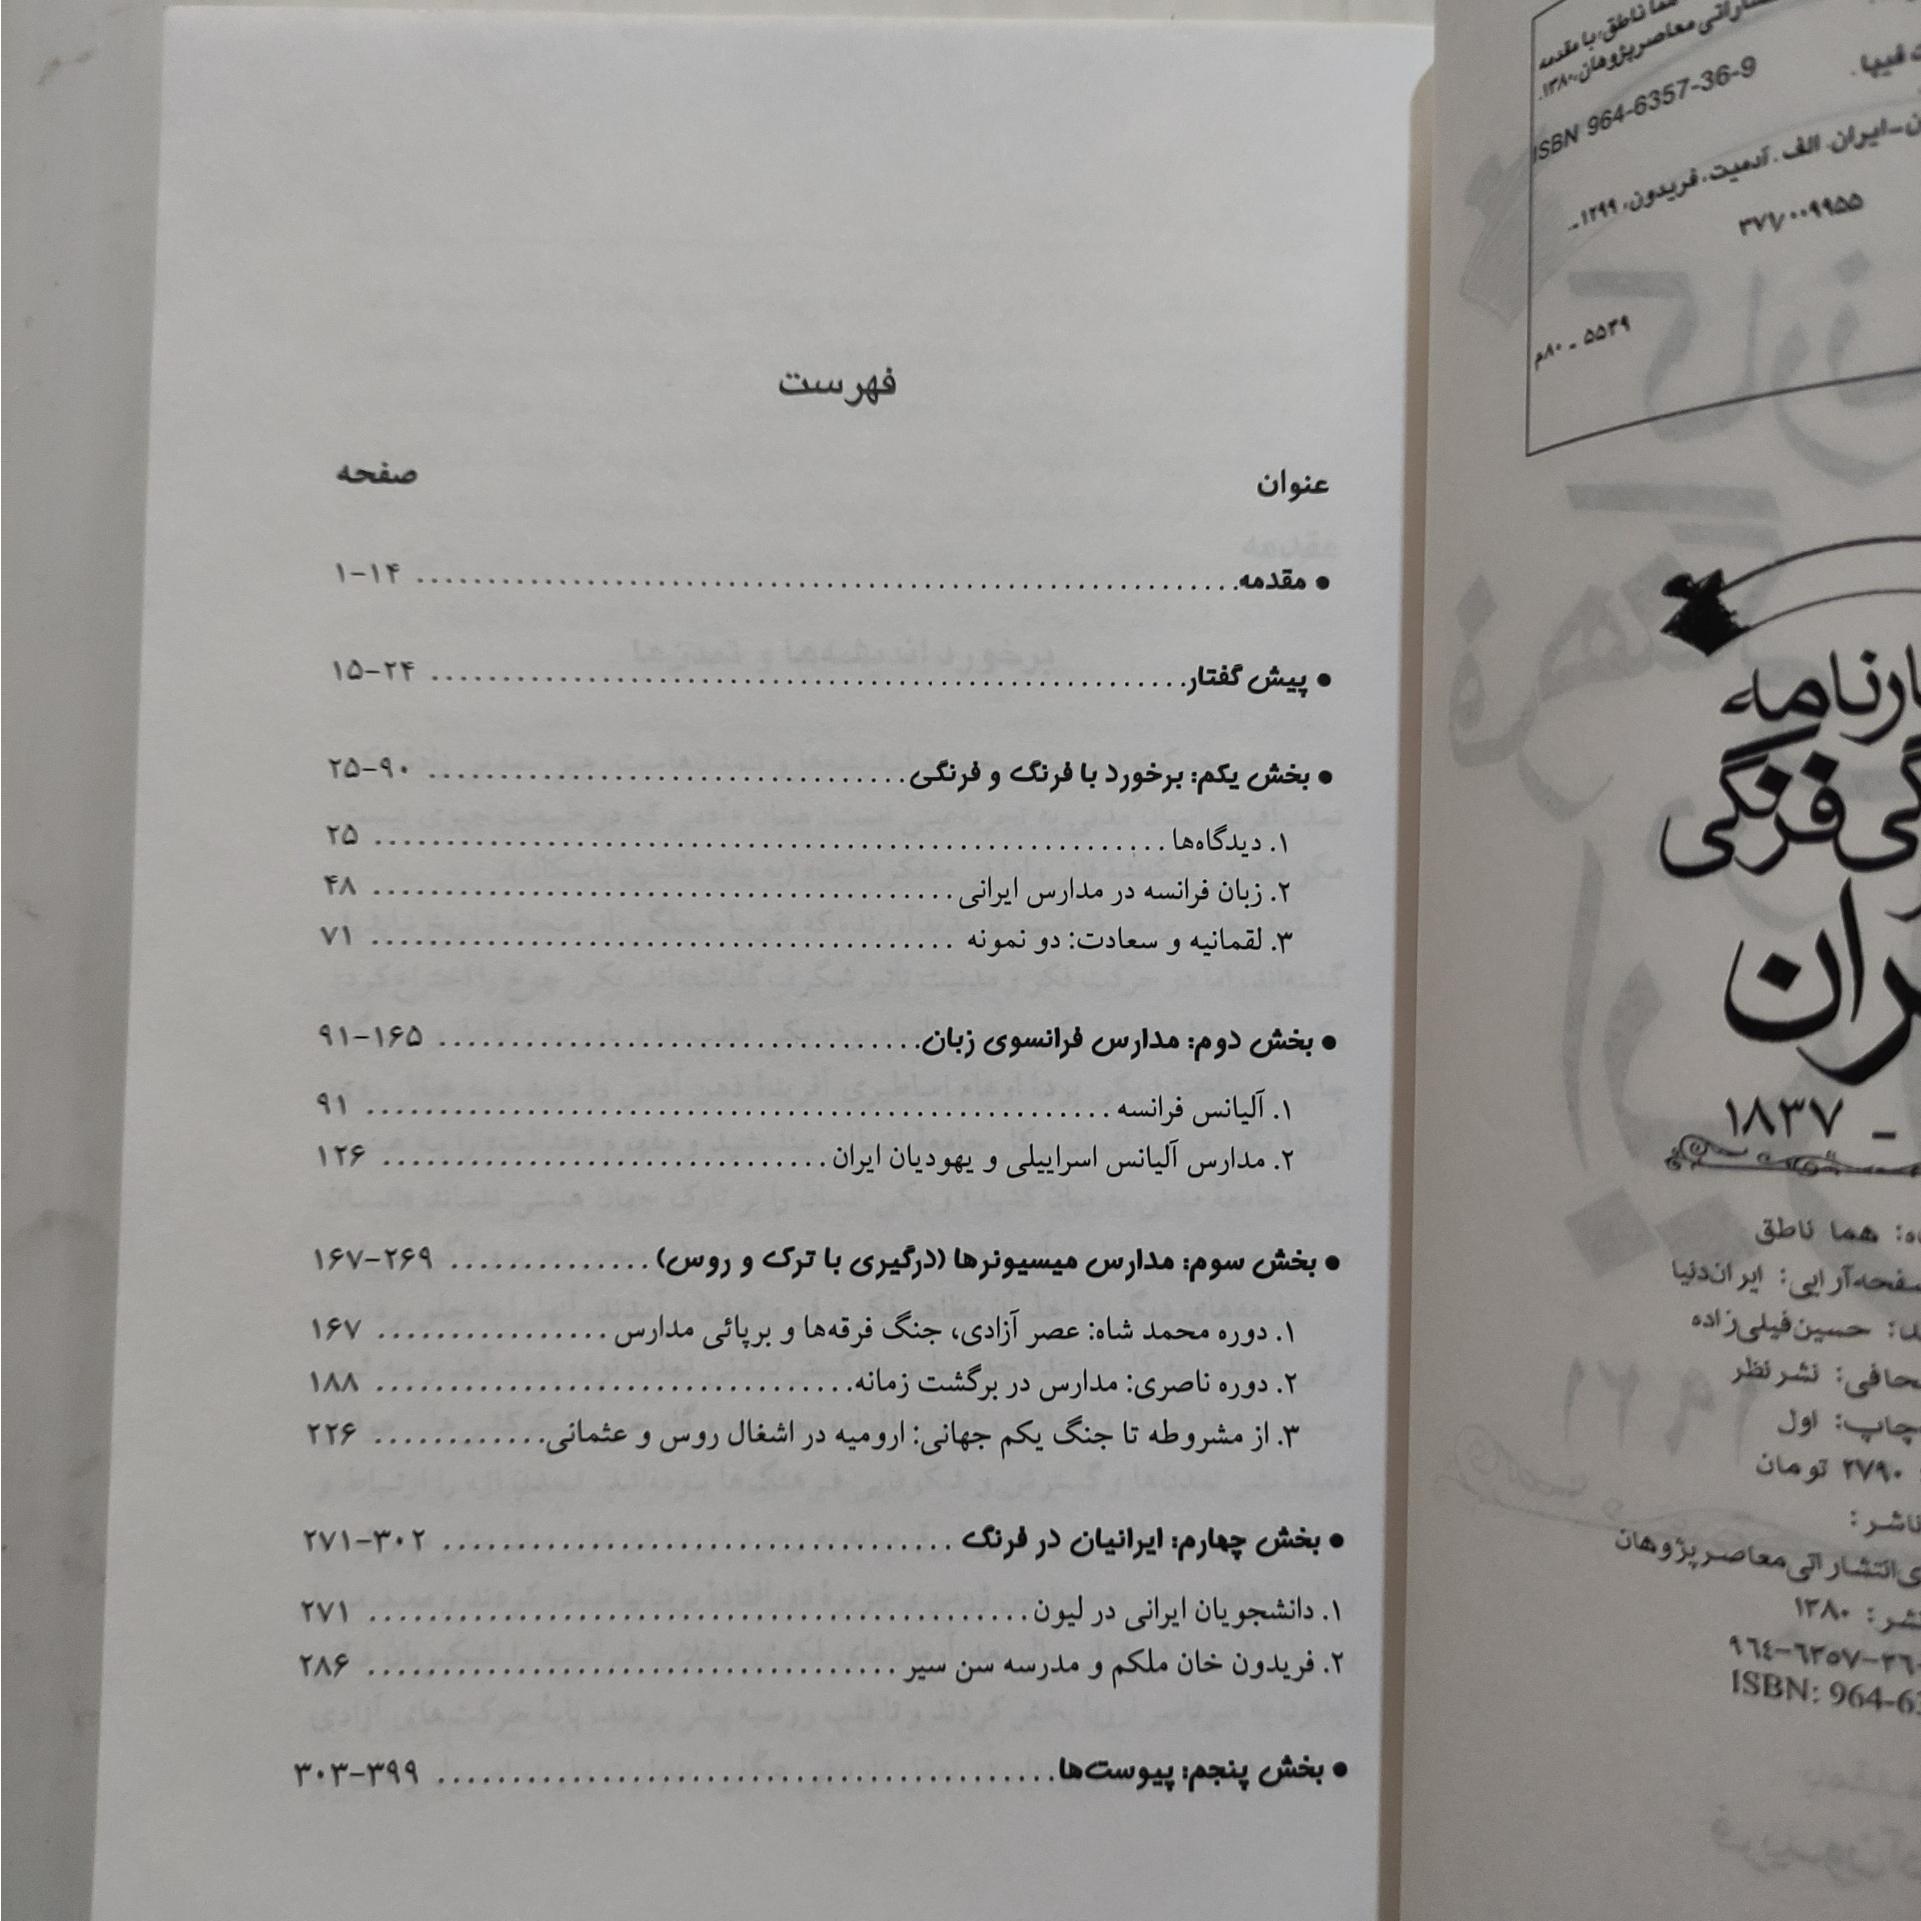 فهرست
عنوان صفحه
● مقدمه ........ ۱–۱۴
● پیش گفتار ........ ۱۵–۲۴
● بخش یکم: برخورد با فرنگ و فرنگی ........ ۲۵–۹۰
۱. دیدگاه‌ها ........ ۲۵
۲. زبان فرانسه در مدارس ایرانی ........ ۴۸
۳. لقمانیه و سعادت: دو نمونه ........ ۷۱
● بخش دوم: مدارس فرانسوی زبان ........ ۹۱–۱۶۵
۱. آلیانس فرانسه ........ ۹۱
۲. مدارس آلیانس اسراییلی و یهودیان ایران ........ ۱۲۶
● بخش سوم: مدارس میسیونرها (درگیری با ترک و روس) ........ ۱۶۷–۲۶۹
۱. دوره محمد شاه: عصر آزادی، جنگ فرقه‌ها و برپائی مدارس ........ ۱۶۷
۲. دوره ناصری: مدارس در برگشت زمانه ........ ۱۸۸
۳. از مشروطه تا جنگ یکم جهانی: ارومیه در اشغال روس و عثمانی ........ ۲۲۶
● بخش چهارم: ایرانیان در فرنگ ........ ۲۷۱–۳۰۲
۱. دانشجویان ایرانی در لیون ........ ۲۷۱
۲. فریدون خان ملکم و مدرسه سن سیر ........ ۲۸۶
● بخش پنجم: پیوست‌ها ........ ۳۰۳–۳۹۹
ناطق، با مقدمه
معاصرپژوهان، ۱۳۸۰.
فیپا.
ISBN 964-6357-36-9
ایران. الف. آدمیت، فریدون، ۱۲۹۹ـ.
۳۷۱/۰۰۹۹۵۵
۵۵۳۹ ـ ۸۰م
فرنگی
۱۸۳۷ ـ
هما ناطق
ایران‌دنیا
حسین فیلی‌زاده
نشر نظر
چاپ: اول
۲۷۹۰ تومان
ناشر:
معاصرپژوهان
۱۳۸۰
۹٦٤-٦٣٥٧-٣٦-
ISBN: 964-63